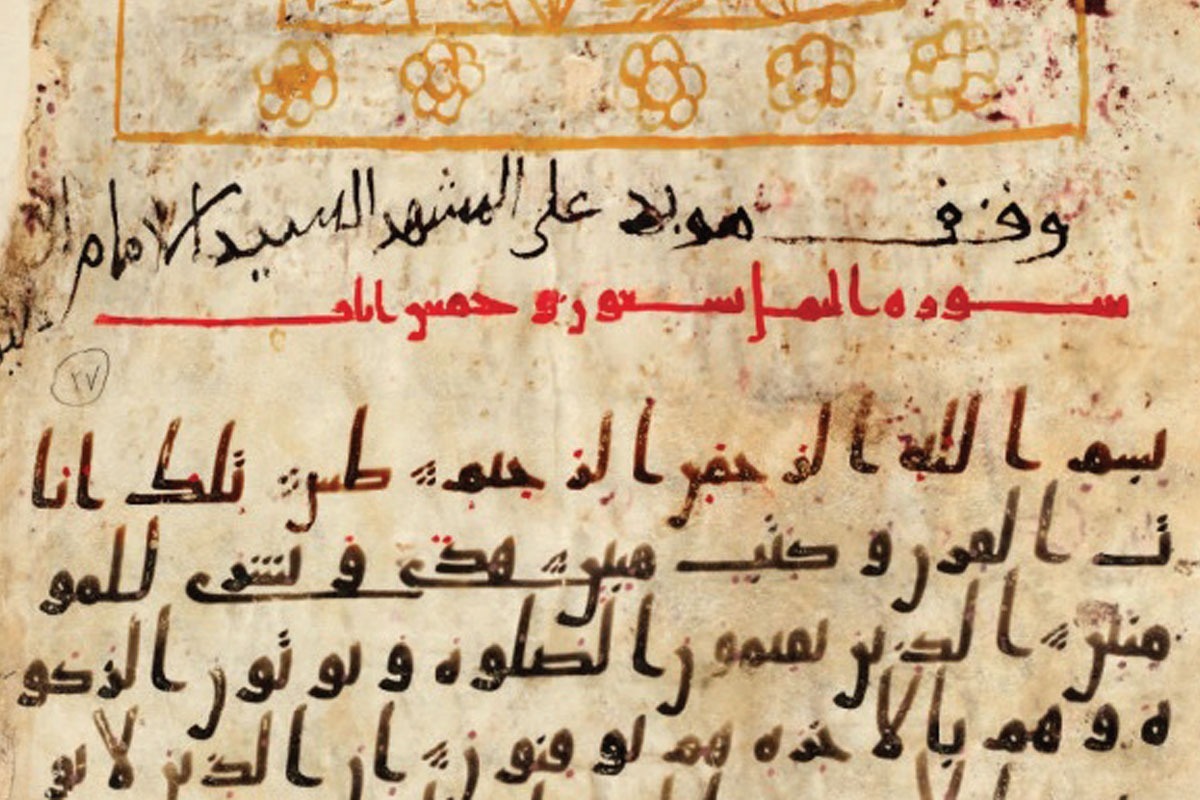 وقف موبد على المشهد السيد الامام
سوره النمل تسعون و خمس ايات
٢٧
بسم الله الرحمن الرحيم طس تلك ايا
ت القرن و كتب مبين هدى و بشرى للمو
منين الذين يقيمون الصلوة و يوتون الزكو
ة و هم بالاخرة هم يوقنون ان الذين لا يو